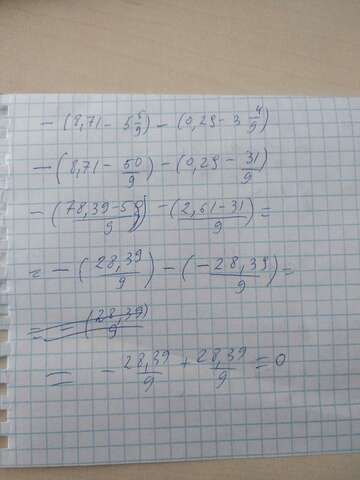 - (8,71 - 5 5/9) - (0,29 - 3 4/9)
- (8,71 - 50/9) - (0,29 - 31/9)
- (78,39-50/9) - (2,61-31/9) =
= - (28,39/9) - (-28,39/9) =
= - (28,39/9)
= - 28,39/9 + 28,39/9 = 0